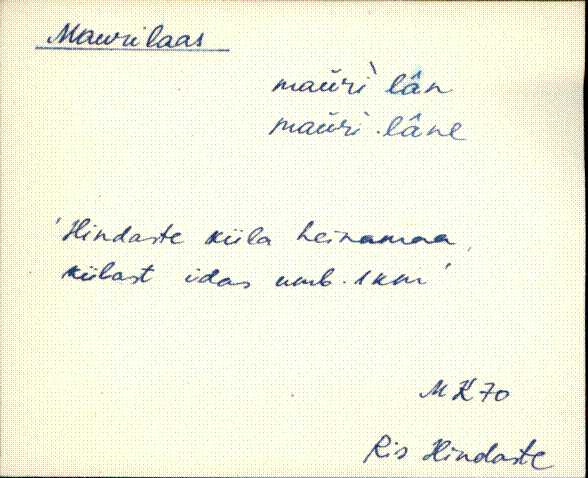 Maurilaas
maŭrì lân
maŭrì lâne
'Hindaste küla heinamaa,
külast idas umb. 1 km'
MK 70
Ris Hindaste